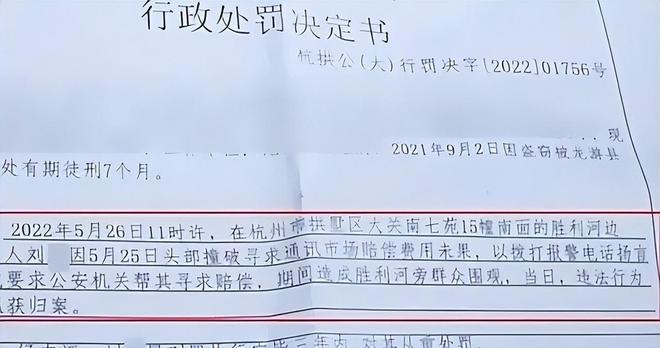 行政处罚决定书
杭拱公(大)行罚决字[2022]01756号
现
2021年9月2日因盗窃被龙游县
处有期徒刑7个月。
2022年5月26日11时许，在杭州市拱墅区大关南七苑15幢南面的胜利河边
人刘 因5月25日头部撞破寻求通讯市场赔偿费用未果，以拨打报警电话扬言
要求公安机关帮其寻求赔偿，期间造成胜利河旁群众围观，当日，违法行为
获归案。
三年内，对其从重处罚。